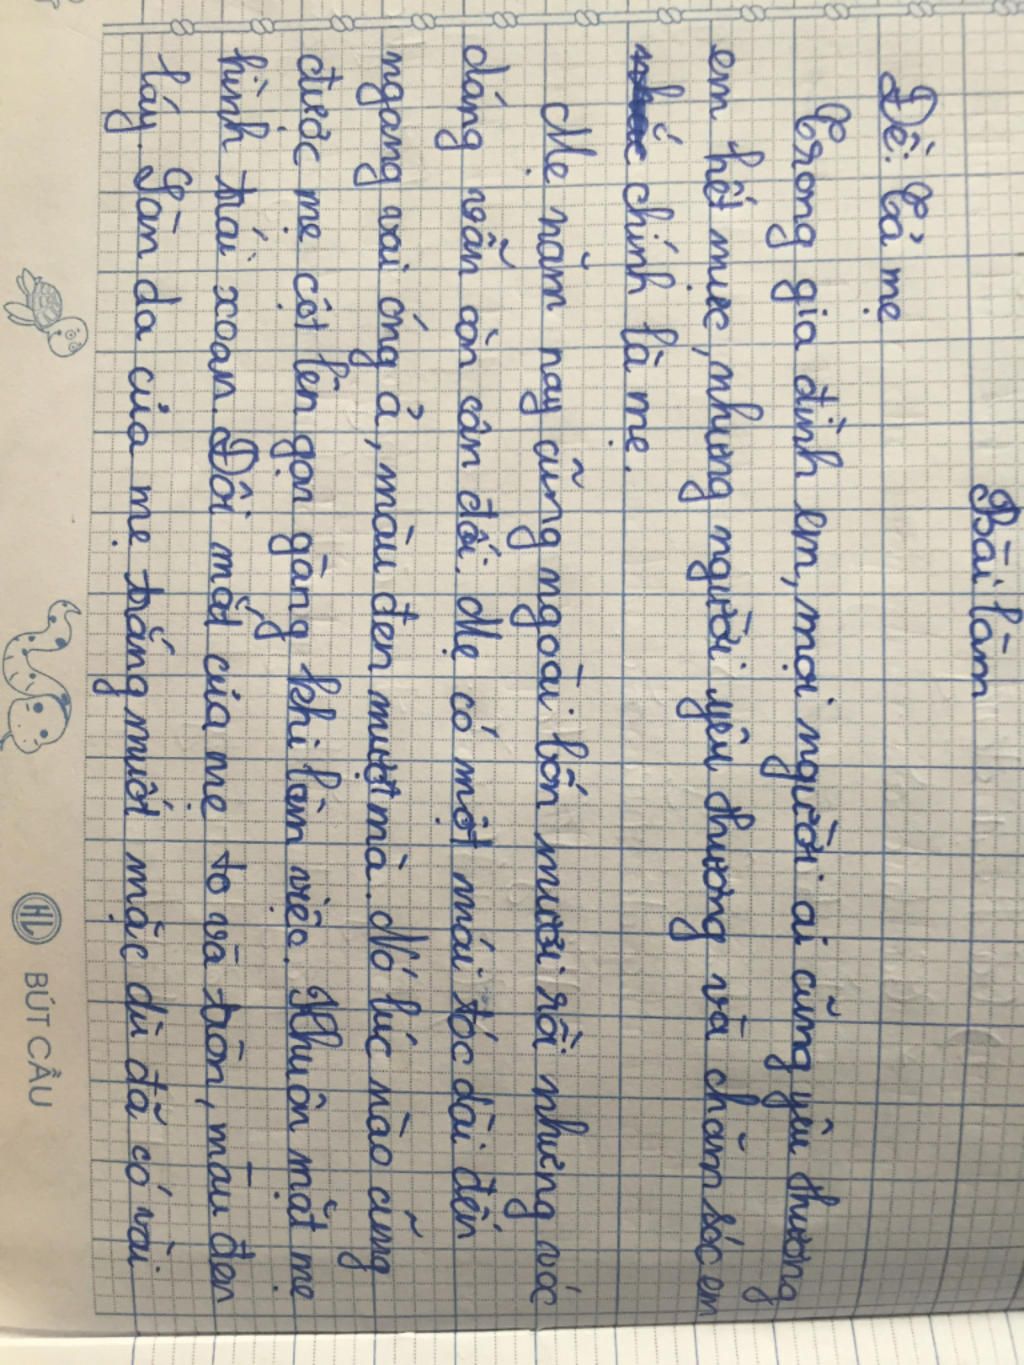 Bài làm
Đề: Tả mẹ
Trong gia đình em, mọi người ai cũng yêu thương
em hết mực, nhưng người yêu thương và chăm sóc em
nhất chính là mẹ.
Mẹ năm nay cũng ngoài bốn mươi rồi nhưng vóc
dáng vẫn còn cân đối. Mẹ có một mái tóc dài đến
ngang vai óng ả, màu đen mượt mà. Nó lúc nào cũng
được mẹ cột lên gọn gàng khi làm việc. Khuôn mặt mẹ
hình trái xoan. Đôi mắt của mẹ to và tròn, màu đen
láy. Làn da của mẹ trắng muốt mặc dù đã có vài
HL BÚT CẦU